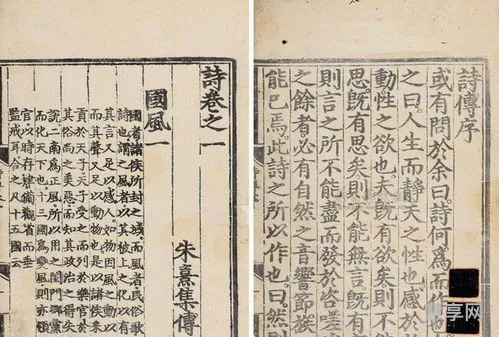 詩傳序
或有問於余曰詩何爲而作也
之曰人生而靜天之性也感於
動性之欲也夫旣有欲矣則不
思旣有思矣則不能無言旣有
則言之所不能盡而發於咨嗟
之餘者必有自然之音響節族
能已焉此詩之所以作也曰然
詩卷之一
朱熹集傳
國風一
國者諸侯所封之域而風者民俗歌
詩也謂之風者以其被上之化以有
其言又足以感人如物因風之動以
而其聲又足以動物也是以諸侯采
貢於天子天子受之而列於樂官於
其俗尚之美惡而知其政治之得失
說二南爲正風所以用之閨門鄉黨
而化天下也十三國爲變風則亦領
官以時存肄備觀省而垂
監戒耳合之凡十五國云
享网